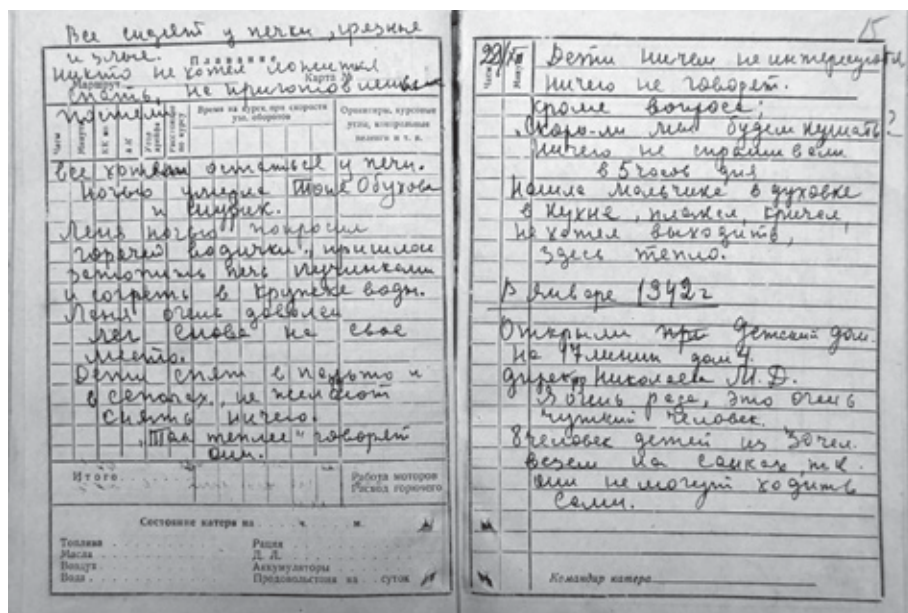 Все сидят у печки, грязные
и злые.
Плавание
никто не хотел ложиться
Маршрут
Карта №
спать, не приготовлены
постели
Часы
Минуты
КК по
Угол дрейфа
Расстояние по курсу
Время на курсе при скорости
узл. оборотов
Ориентиры, курсовые
углы, контрольные
пеленги и т. п.
все хотят остаться у печи.
Ночью умерла Тоня Обухова
и Шурик.
Леня ночью попросил
горячей водички, пришлось
затопить печь лучинками
и согреть в кружке воды.
Леня очень доволен
лег снова на свое
место.
Дети спят в пальто и
в сапогах, не желают
снять ничего.
„Так теплее“ говорят
они.
Итого
Работа моторов
Расход горючего
Состояние катера на ч. м.
Топлива
Рация
Масла
Д. Л.
Воздух
Аккумуляторы
Вода
Продовольствия на суток
15
Часы
Минуты
22/XII Дети ничем не интересуются
ничего не говорят.
кроме вопроса:
„Скоро-ли мы будем кушать?
Ничего не спрашивали
в 5 часов дня
Нашла мальчика в духовке
в кухне, плакал, кричал,
не хотел выходить,
здесь тепло.
В январе 1942 г
Открыли при Детский дом.
на 17 линии дом 4.
директор Николаева М. Д.
Я очень рада, это очень
чуткий человек.
8 человек детей из 30 чел.
везем на санках, т.к.
они не могут ходить
сами.
Командир катера